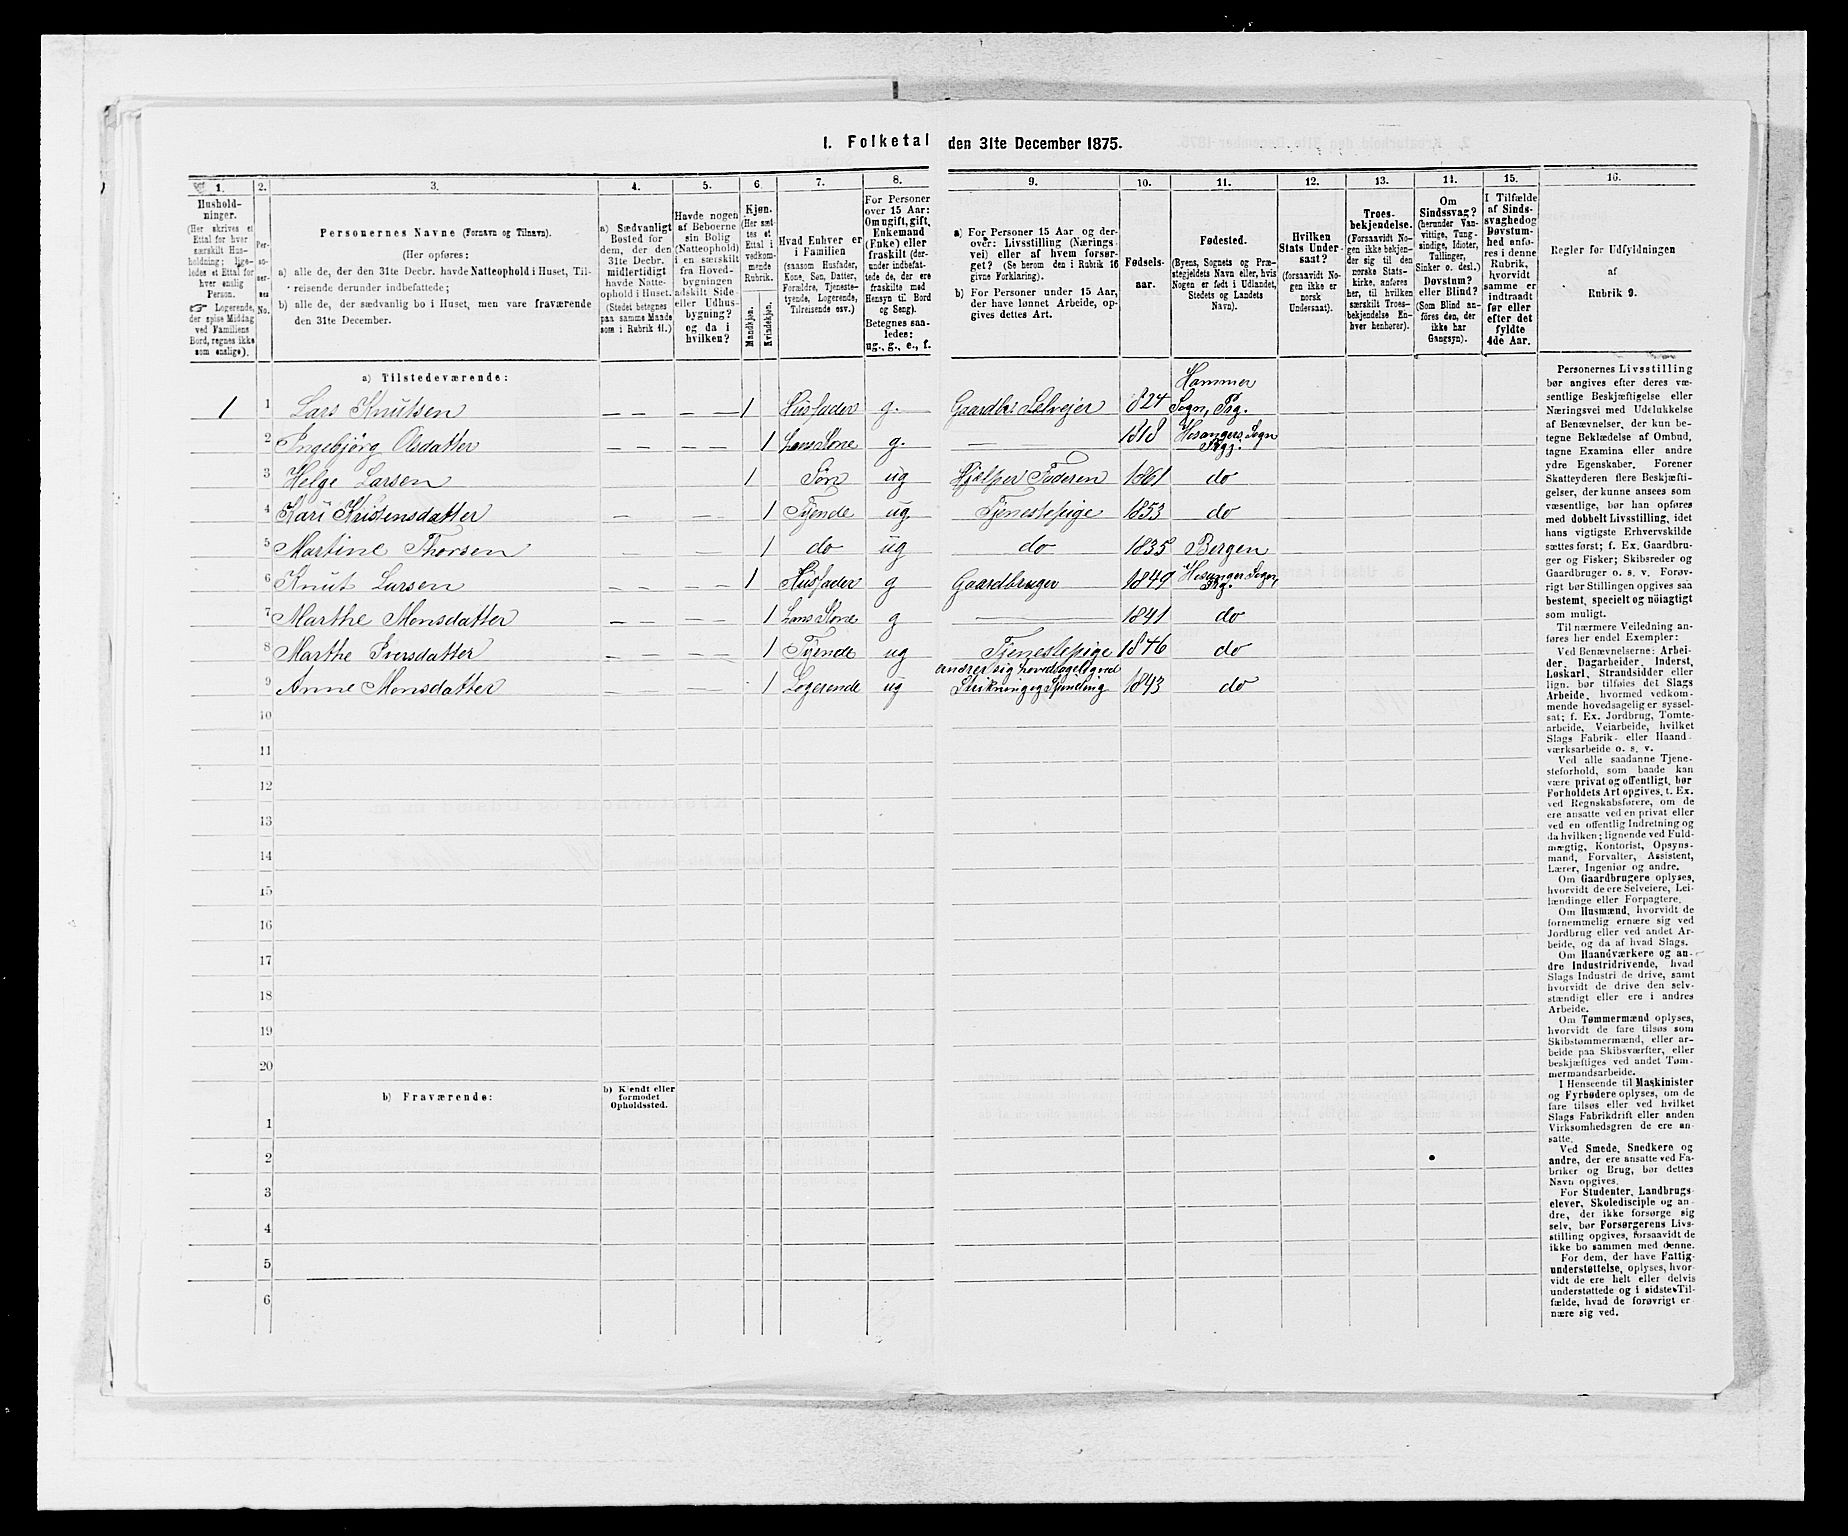 I. Folketal den 31te December 1875.
1. 2. 3. 4. 5. 6. 7. 8. 9. 10. 11. 12. 13. 14. 15. 16.
Hushold-
ninger.
(Her skrives et
Ettal for hver
særskilt Hus-
holdning; lige-
ledes et Ettal for
hver enslig
Person.
☞ Logerende,
der spise Middag
ved Familiens
Bord, regnes ikke
som enslige).
Per-
so-
ner-
nes
No.
Personernes Navne (Fornavn og Tilnavn).
(Her opføres:
a) alle de, der den 31te Decbr. havde Natteophold i Huset, Til-
reisende derunder indbefattede;
b) alle de, der sædvanlig bo i Huset, men vare fraværende
den 31te December.
a) Sædvanligt
Bosted for
dem, der den
31te Decbr.
midlertidigt
havde Natte-
ophold i Huset.
(Stedet betegnes
paa samme Maade
som i Rubrik 11.)
Havde nogen
af Beboerne
sin Bolig
(Natteophold)
i en særskilt
fra Hoved-
bygningen
adskilt Side-
eller Udhus-
bygning?
og da i
hvilken?
Kjøn.
(Her sæt-
tes et
Ettal i
vedkom-
mende
Rubrik.
Mandkjøn.
Kvindekjøn.
Hvad Enhver er
i Familien
(saasom Husfader,
Kone, Søn, Datter,
Forældre, Tjeneste-
tyende, Logerende,
Tilreisende osv.)
For Personer
over 15 Aar:
Om ugift, gift,
Enkemand
(Enke) eller
fraskilt (der-
under indbefat-
tede de, der ere
fraskilte med
Hensyn til Bord
og Seng).
Betegnes saa-
ledes:
ug., g., e., f.
a) For Personer 15 Aar og der-
over: Livsstilling (Nærings-
vei) eller af hvem forsør-
get? (Se herom den i Rubrik 16
givne Forklaring).
b) For Personer under 15 Aar,
der have lønnet Arbeide, op-
gives dettes Art.
Fødsels-
aar.
Fødested.
(Byens, Sognets og Præ-
stegjeldets Navn eller, hvis
Nogen er født i Udlandet,
Stedets og Landets
Navn).
Hvilken
Stats Under-
saat?
(forsaavidt No-
gen ikke er
norsk
Undersaat).
Troes-
bekjendelse.
(Forsaavidt No-
gen ikke bekjen-
der sig til den
norske Stats-
kirke, anføres
her, til hvilken
særskilt Troes-
bekjendelse En-
hver henhører).
Om
Sindssvag?
(herunder Van-
vittige, Tung-
sindige, Idioter,
Tullinger,
Sinker o. desl.)
Døvstum?
eller Blind?
(Som Blind an-
føres den, der
ikke har
Gangsyn).
I Tilfælde
af Sinds-
svaghed og
Døvstum-
hed anfø-
res i denne
Rubrik,
hvorvidt
samme er
indtraadt
før eller
efter det
fyldte
4de Aar.
Regler for Udfyldningen
af
Rubrik 9.
a) Tilstedeværende:
1 1 Lars Knutsen 1 Husfader g. Gaardbr. Selveier 1824 Hammer Sogn, Prg.
2 Ingebjørg Olsdatter 1 Hans Kone g. 1818 Hosangers Sogn Prg.
3 Helge Larsen 1 Søn ug Hjælper Faderen 1861 do
4 Kari Kristensdatter 1 Tyende ug. Tjenestepige 1853 do
5 Martine Thorsen 1 do ug do 1835 Bergen
6 Knut Larsen 1 Husfader g Gaardbruger 1849 Hosanger Sogn, Prg.
7 Marthe Monsdatter 1 Hans Kone g 1841 do
8 Marthe Iversdatter 1 Tyende ug Tjenestepige 1846 do
9 Anne Monsdatter 1 Logerende ug ernærer sig hovedsagelig ved Strikning og Spinding 1843 do
10
11
12
13
14
15
16
17
18
19
20
b) Fraværende:
b) Kjendt eller
formodet
Opholdssted.
1
2
3
4
5
6
Personernes Livsstilling
bør angives efter deres væ-
sentlige Beskjæftigelse eller
Næringsvei med Udelukkelse
af Benævnelser, der kun be-
tegne Beklædelse af Ombud,
tagne Examina eller andre
ydre Egenskaber. Forener
Skatteyderen flere Beskjæfti-
gelser, der kunne ansees som
væsentlige, bør han opføres
med dobbelt Livsstilling, idet
hans vigtigste Erhvervskilde
sættes først; f. Ex. Gaardbru-
ger og Fisker; Skibsreder og
Gaardbruger o. s. v. Forøv-
rigt bør Stillingen opgives saa
bestemt, specielt og nöiagtigt
som muligt.
Til nærmere Veiledning an-
føres her endel Exempler:
Ved Benævnelserne: Arbei-
der, Dagarbeider, Inderst,
Løskarl, Strandsidder eller
lign. bør tilføies det Slags
Arbeide, hvormed vedkom-
mende hovedsagelig er syssel-
sat; f. Ex. Jordbrug, Tomte-
arbeide, Veiarbeide, hvilket
Slags Fabrik- eller Haand-
værksarbeide o. s. v.
Ved alle saadanne Tjene-
steforhold, som baade kan
være privat og offentligt, bør
Forholdets Art opgives, t. Ex.
ved Regnskabsførere, om de
ere ansatte ved en privat eller
ved en offentlig Indretning og
da hvilken; lignende ved Fuld-
mægtig, Kontorist, Opsyns-
mand, Forvalter, Assistent,
Lærer, Ingeniør og andre.
Om Gaardbrugere oplyses,
hvorvidt de ere Selveiere, Lei-
lændinge eller Forpagtere.
Om Husmænd, hvorvidt de
fornemmelig ernære sig ved
Jordbrug eller ved andet Ar-
beide, og da af hvad Slags.
Om Haandværkere og an-
dre Industridrivende, hvad
Slags Industri de drive, samt
hvorvidt de drive den selv-
stændigt eller ere i andres
Arbeide.
Om Tømmermænd oplyses,
hvorvidt de fare tilsøs som
Skibstømmermænd, eller ar-
beide paa Skibsværfter, eller
beskjæftiges ved andet Tøm-
mermandsarbeide.
I Henseende til Maskinister
og Fyrbødere oplyses, om de
fare tilsøs eller ved hvilket
Slags Fabrikdrift eller anden
Virksomhedsgren de ere an-
satte.
Ved Smede, Snedkere og
andre, der ere ansatte ved Fa-
briker og Brug, bør dettes
Navn opgives.
For Studenter, Landbrugs-
elever, Skoledisciple og an-
dre, der ikke forsørge sig
selv, bør Forsørgerens Livs-
stilling opgives, forsaavidt de
ikke bo sammen med denne.
For dem, der have Fattig-
understøttelse, oplyses, hvor-
vidt de ere helt eller delvis
understøttede og i sidste Til-
fælde, hvad de forøvrigt er-
nære sig ved.